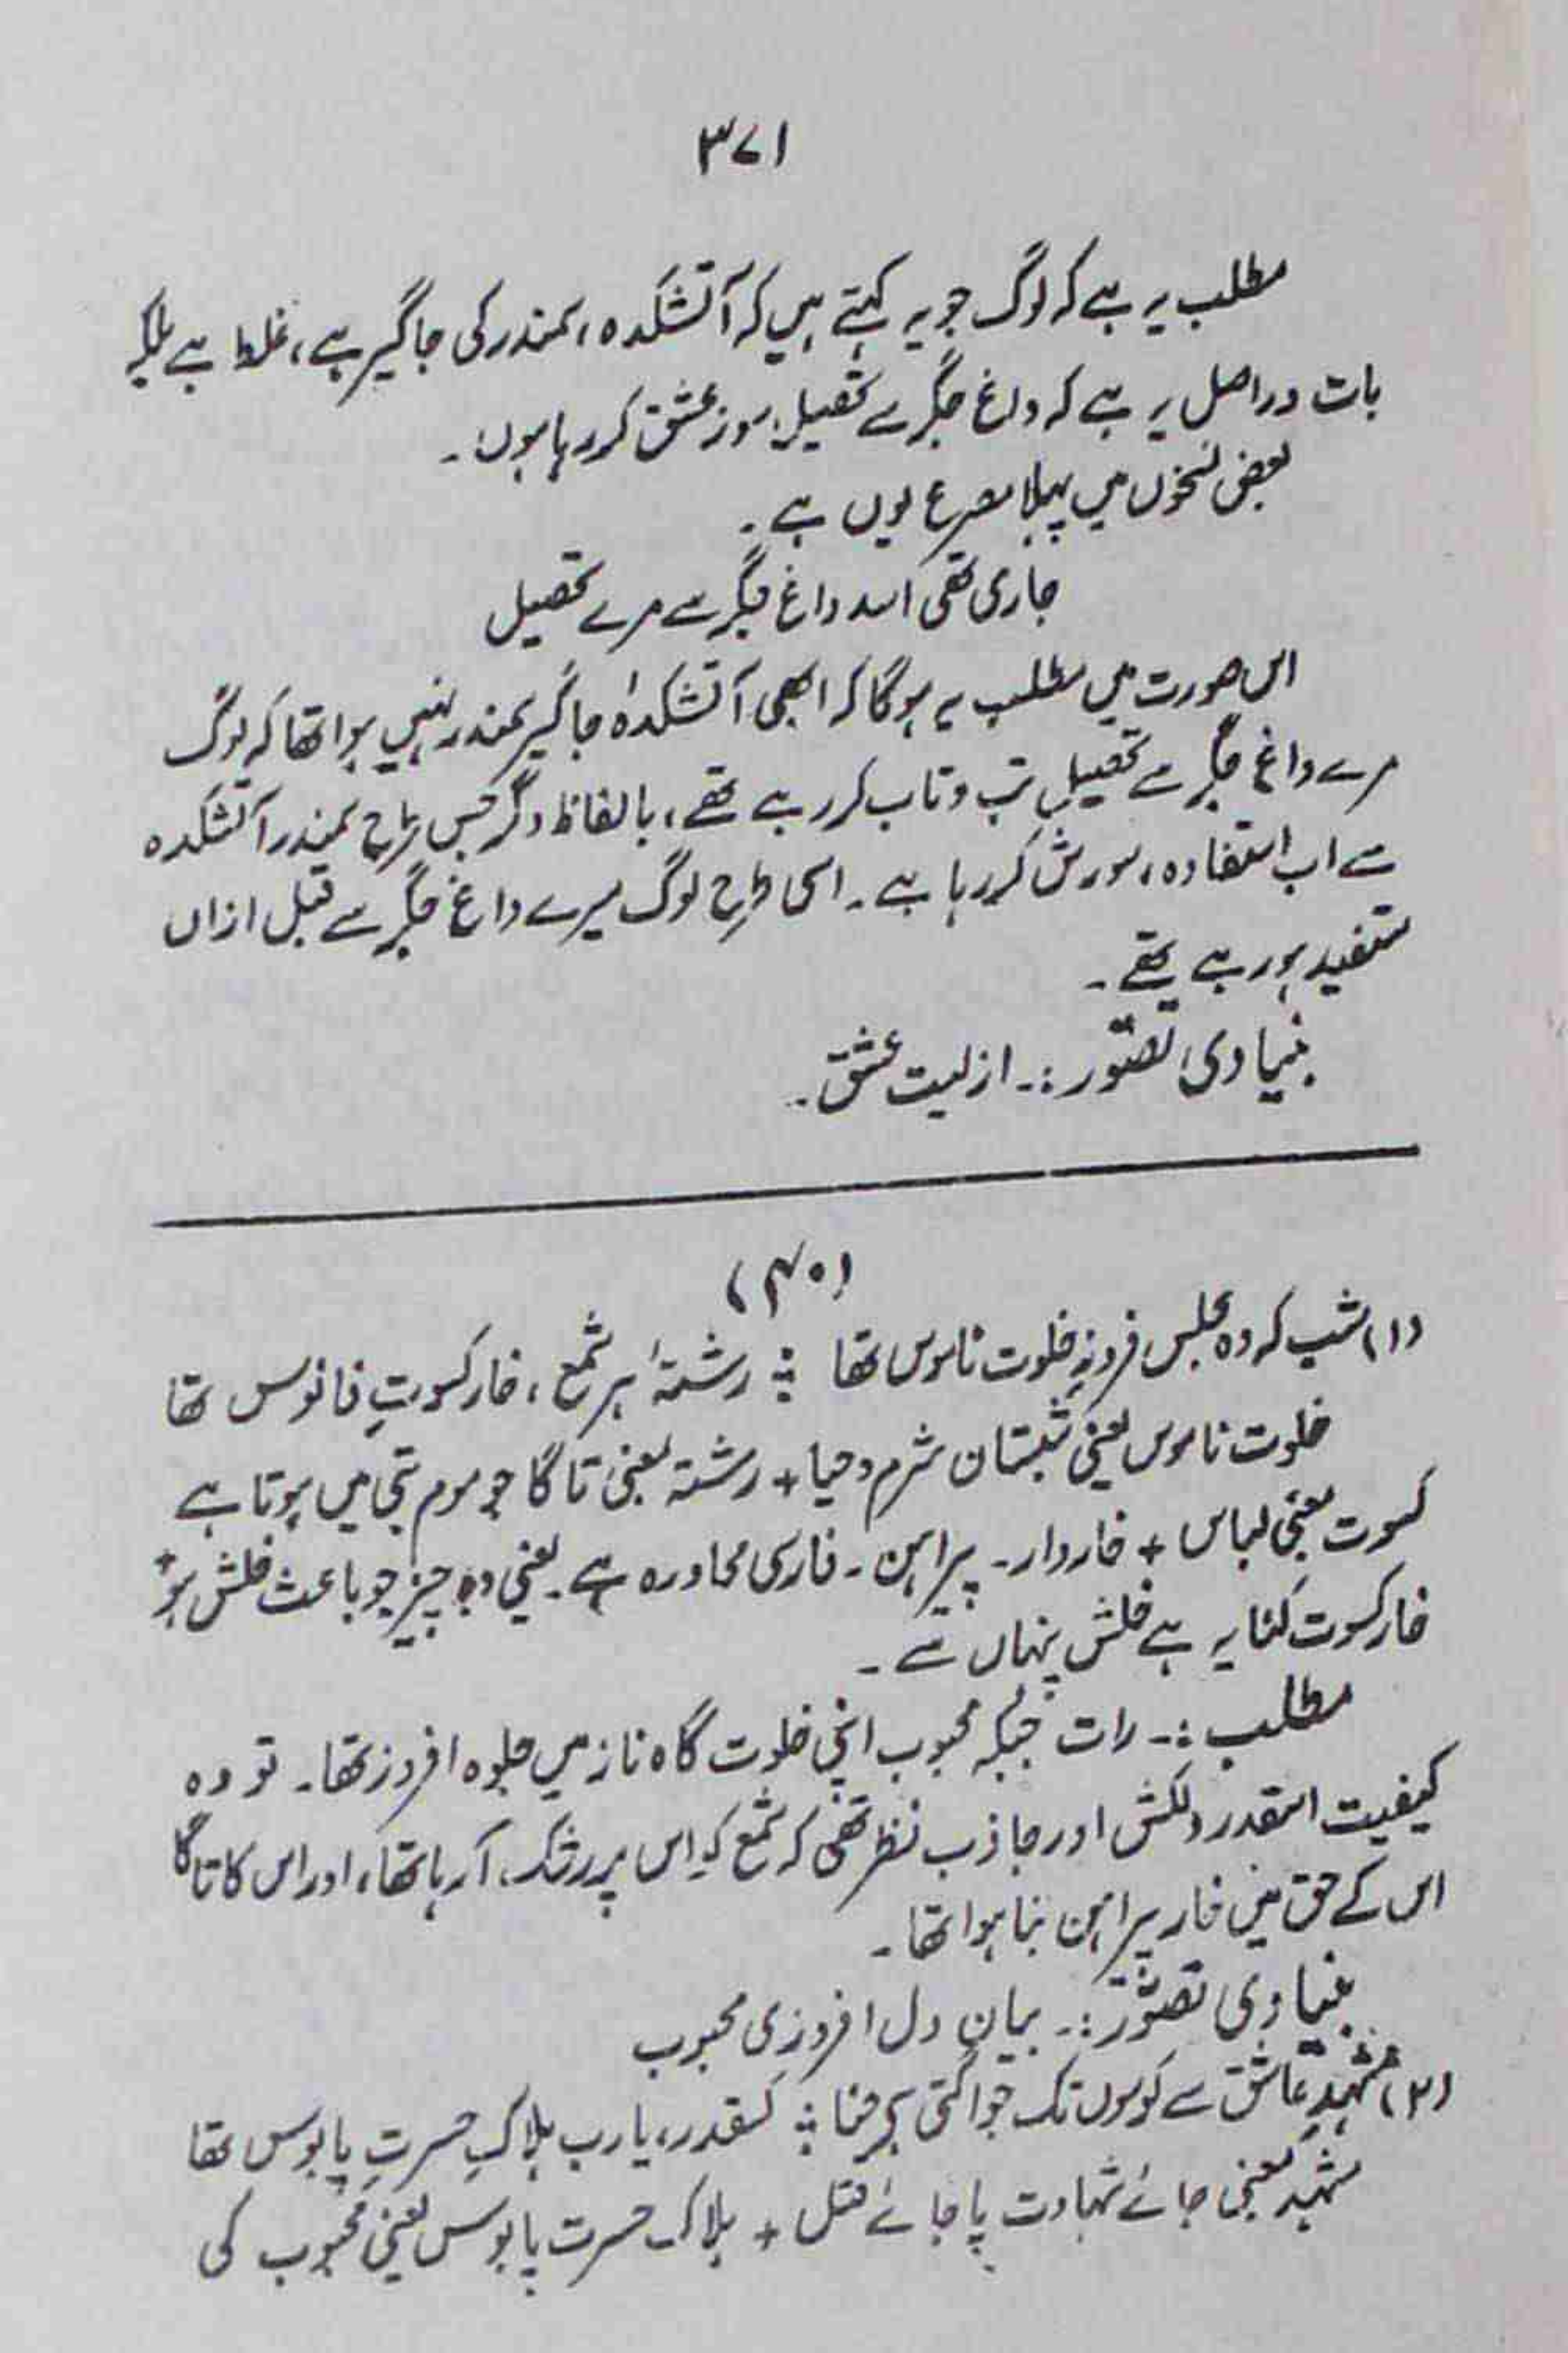 ۳۷۱
مطلب یہ ہے کہ لوگ جو یہ کہتے ہیں کہ آتشکدہ، سمندر کی جاگیر ہے، غلط ہے بلکہ
بات دراصل یہ ہے کہ داغ جگر سے تحصیل سوز عشق کر رہا ہوں۔
بعض نسخوں میں پہلا مصرع یوں ہے۔
جاری تھی اسد داغ جگر سے مرے تحصیل
اس صورت میں مطلب یہ ہوگا کہ ابھی آتشکدہ جاگیر سمندر نہیں ہوا تھا کہ لوگ
مرے داغ جگر سے تحصیلِ تب و تاب کر رہے تھے، بالفاظ دگر جس طرح سمندر آتشکدہ
سے اب استفادہ، سورش کر رہا ہے۔ اسی طرح لوگ میرے داغ جگر سے قبل ازاں
مستفید ہو رہے تھے۔
بنیادی تصوّر :۔ ازلیت عشق۔
(۴۰)
(۱) شب کہ وہ مجلس فروزِ خلوت ناموس تھا ؞ رشتۂ ہر شمع، خار کسوتِ فانوس تھا
خلوت ناموس یعنی شبستان شرم و حیا + رشتہ یعنی تاگا جو موم بتی میں ہوتا ہے
کسوت بمعنی لباس + خاردار۔ پیراہن۔ فارسی محاورہ ہے۔ یعنی وہ چیز جو باعث خلش ہو +
خار کسوت کنایہ ہے خلش پنہاں سے۔
مطلب :۔ رات جبکہ محبوب اپنی خلوت گاہ ناز میں جلوہ افروز تھا۔ تو وہ
کیفیت اسقدر دلکش اور جاذب نظر تھی کہ شمع کو اس پر رشک آ رہا تھا، اور اس کا تاگا
اس کے حق میں خار پیراہن بنا ہوا تھا۔
بنیادی تصوّر :۔ بیان دل افروزی محبوب
(۲) مشہدِ عاشق سے کوسوں تک جو اگتی ہے حنا ؞ کسقدر، یارب ہلاکِ حسرتِ پابوس تھا
مشہد بمعنی جائے شہادت یا جائے قتل + ہلاک حسرت پابوس یعنی محبوب کی